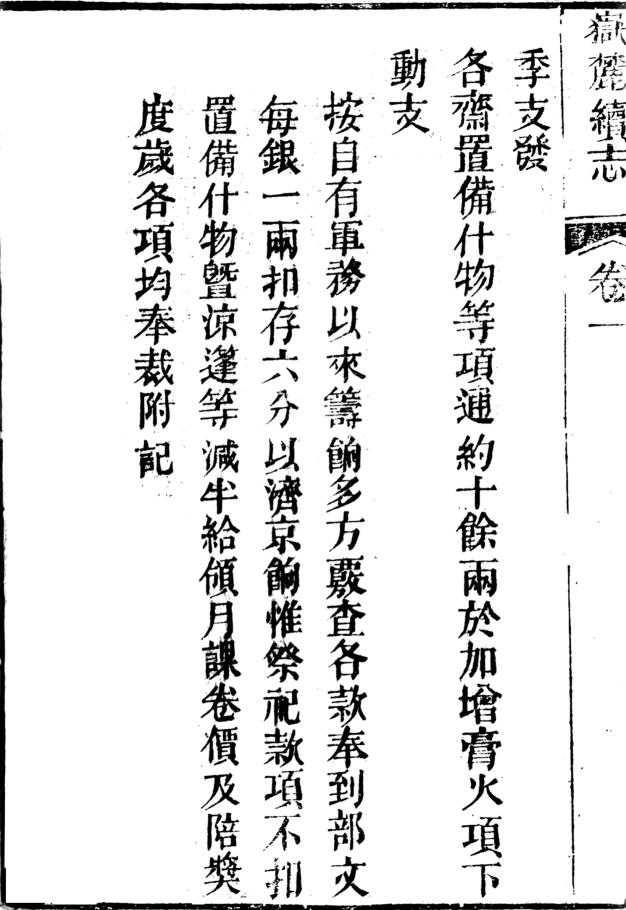 嶽麓續志
卷一
季支發
各齋置備什物等項通約十餘兩於加增膏火項下
動支
按自有軍務以來籌餉多方覈查各款奉到部文
每銀一兩扣存六分以濟京餉惟祭祀款項不扣
置備什物暨涼蓬等減半給領月課卷價及陪獎
度歲各項均奉裁附記